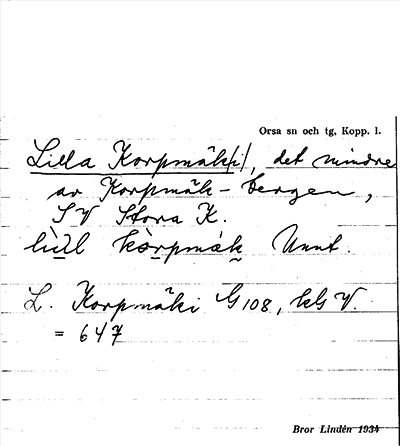 Orsa sn och tg, Kopp. l.
Lilla Korpmäk(i), det mindre
av Korpmäk-bergen,
SV Stora K.
lìd̲l kò̲rpmák̰ Unnt.
L. Korpmäki G 108, kls V.
= 647
Bror Lindén 1934